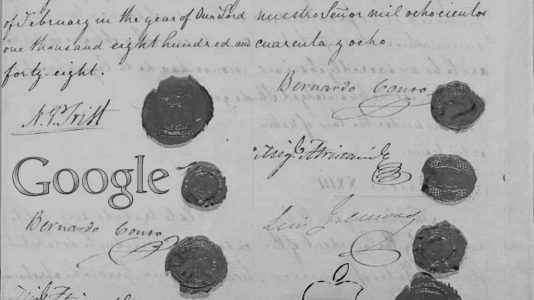 of February in the year of Our Lord nuestro Señor mil ochocientos
one thousand eight hundred and cuarenta y ocho.
forty-eight.
Bernardo Couto
N. P. Trist
Google
Bernardo Couto